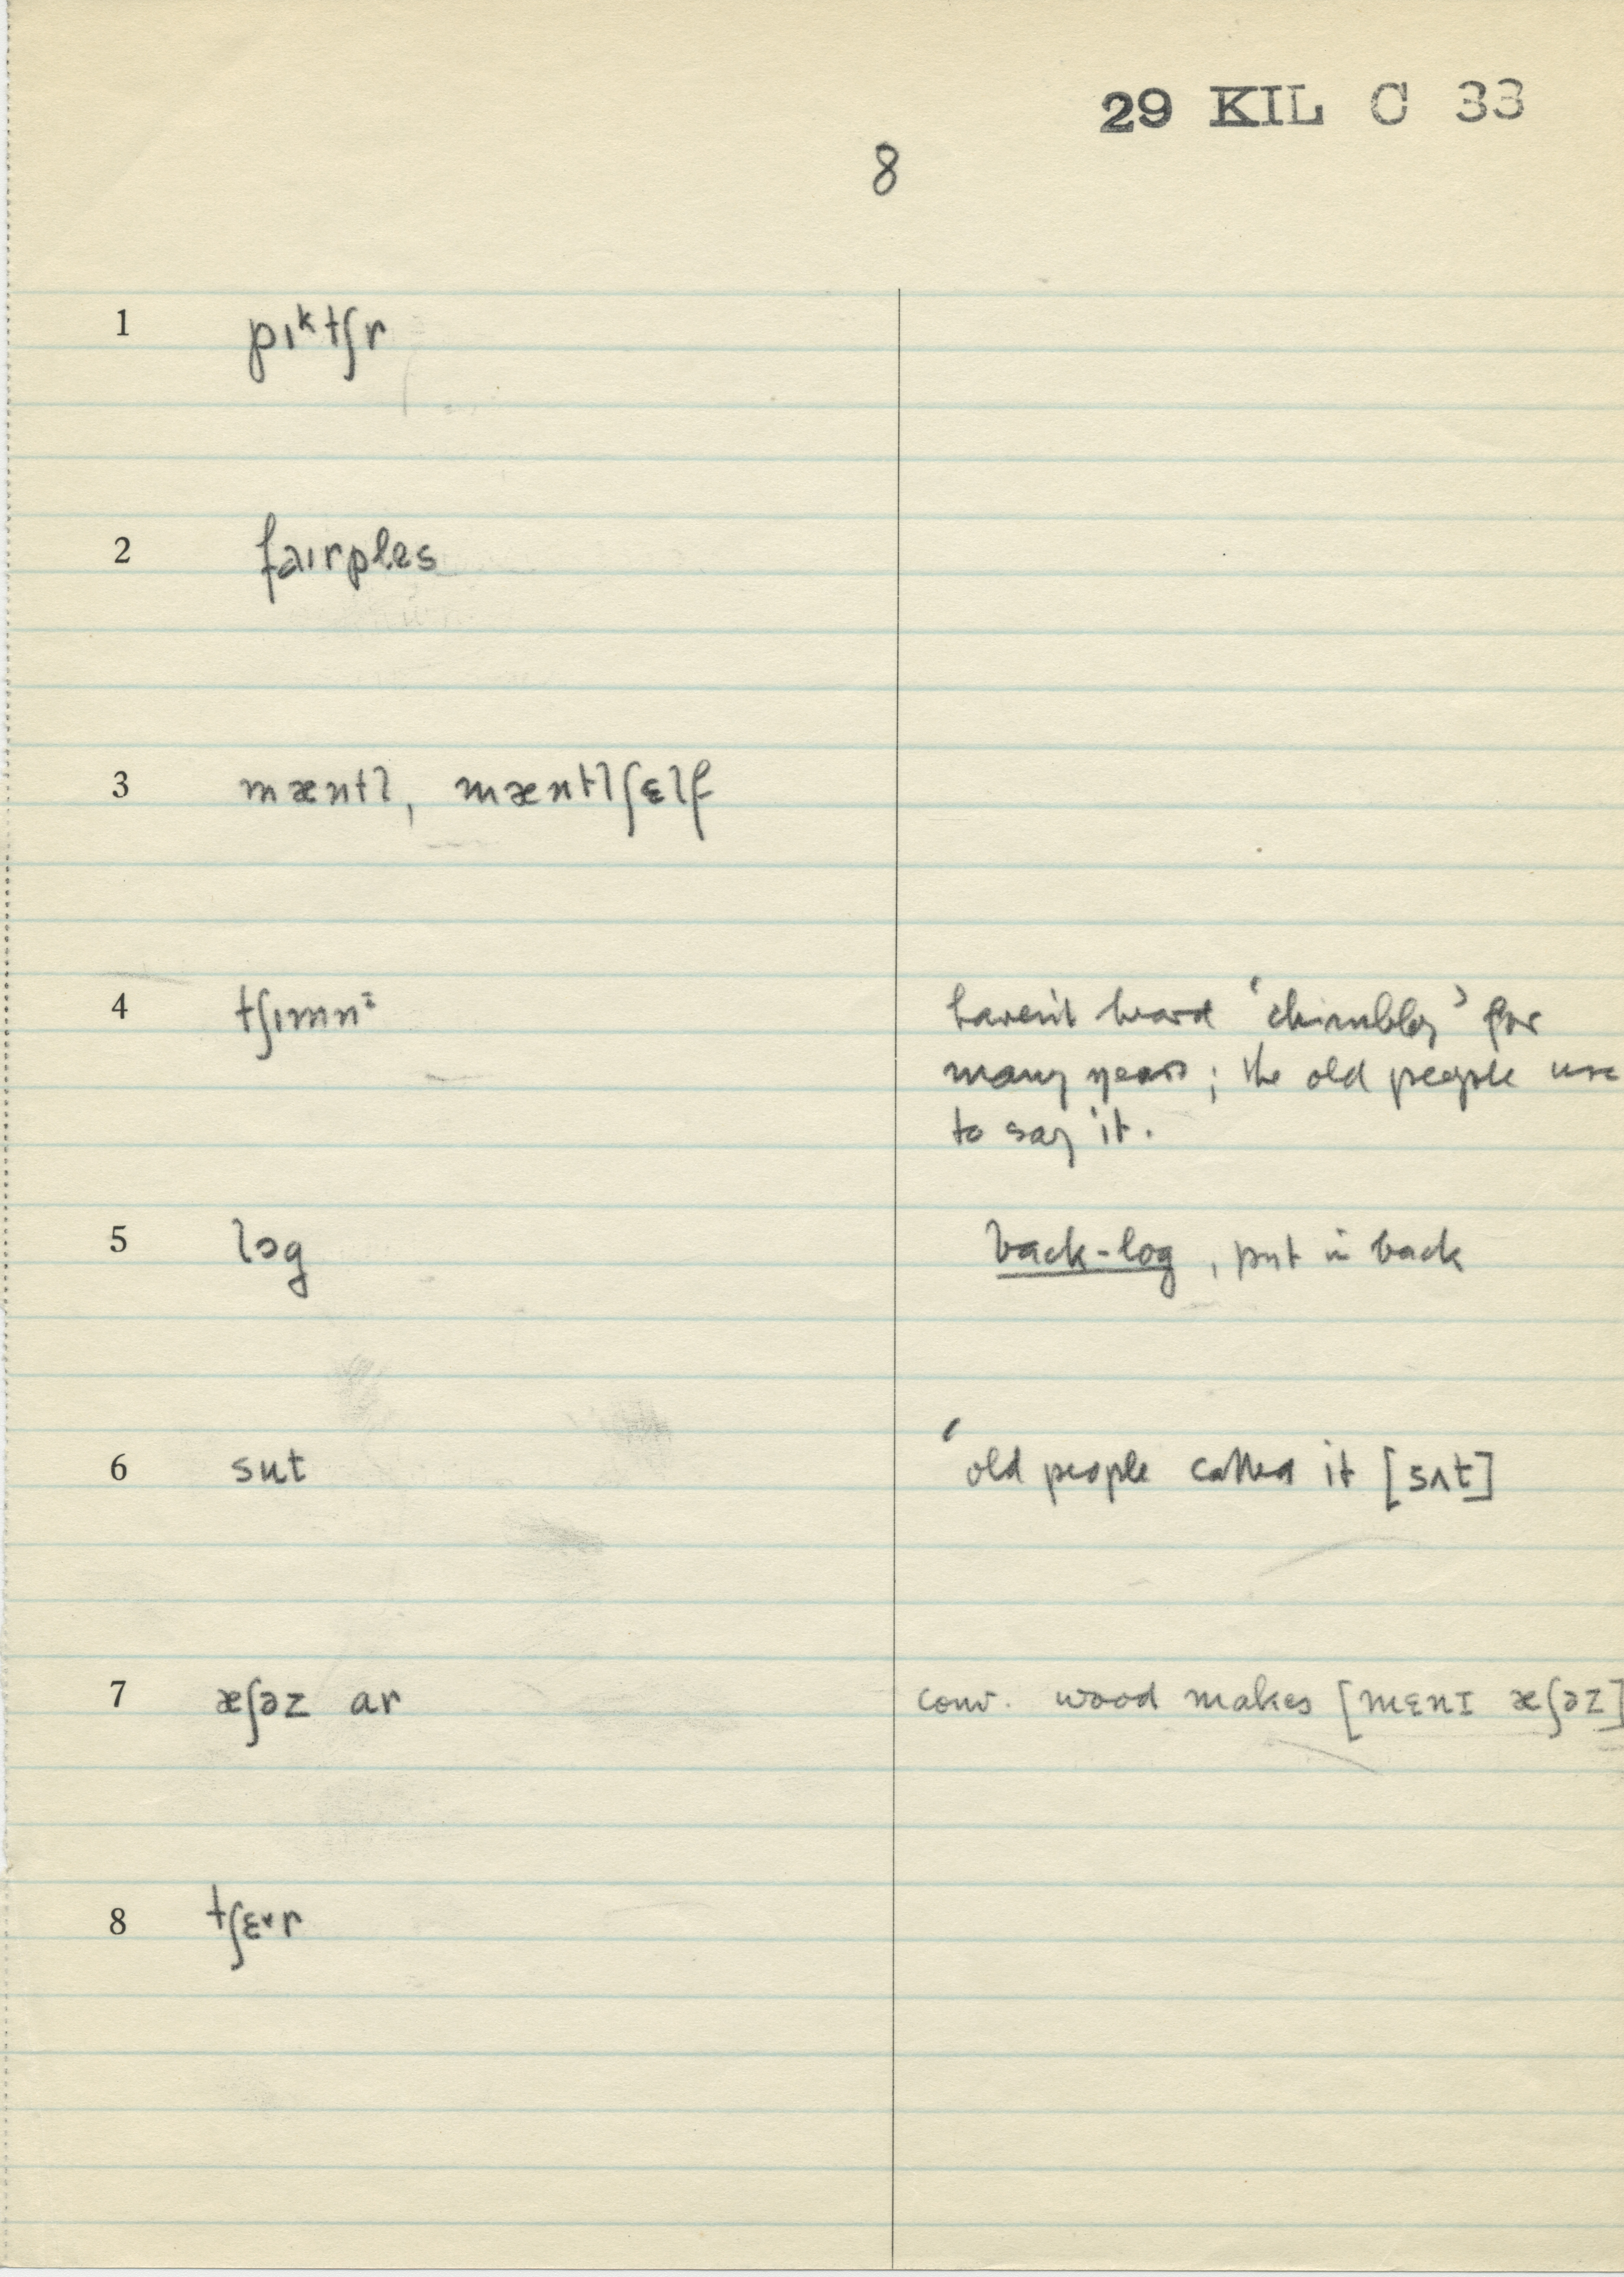 29 KIL C 33
8
1 pɪᵏtʃr
2 faɪrples
3 mæntl, mæntlʃɛlf
4 tʃɪmnⁱ haven't heard 'chimbley' for
many years; the old people use
to say it.
5 lɔg back-log, put in back
6 sut ' old people called it [sʌt]
7 æʃəz ar conv. wood makes [mɛnɪ æʃəz]
8 tʃɛ˅r